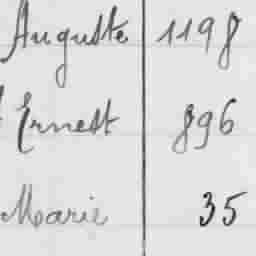 Auguste 1198
Ernest 896
Marie 35